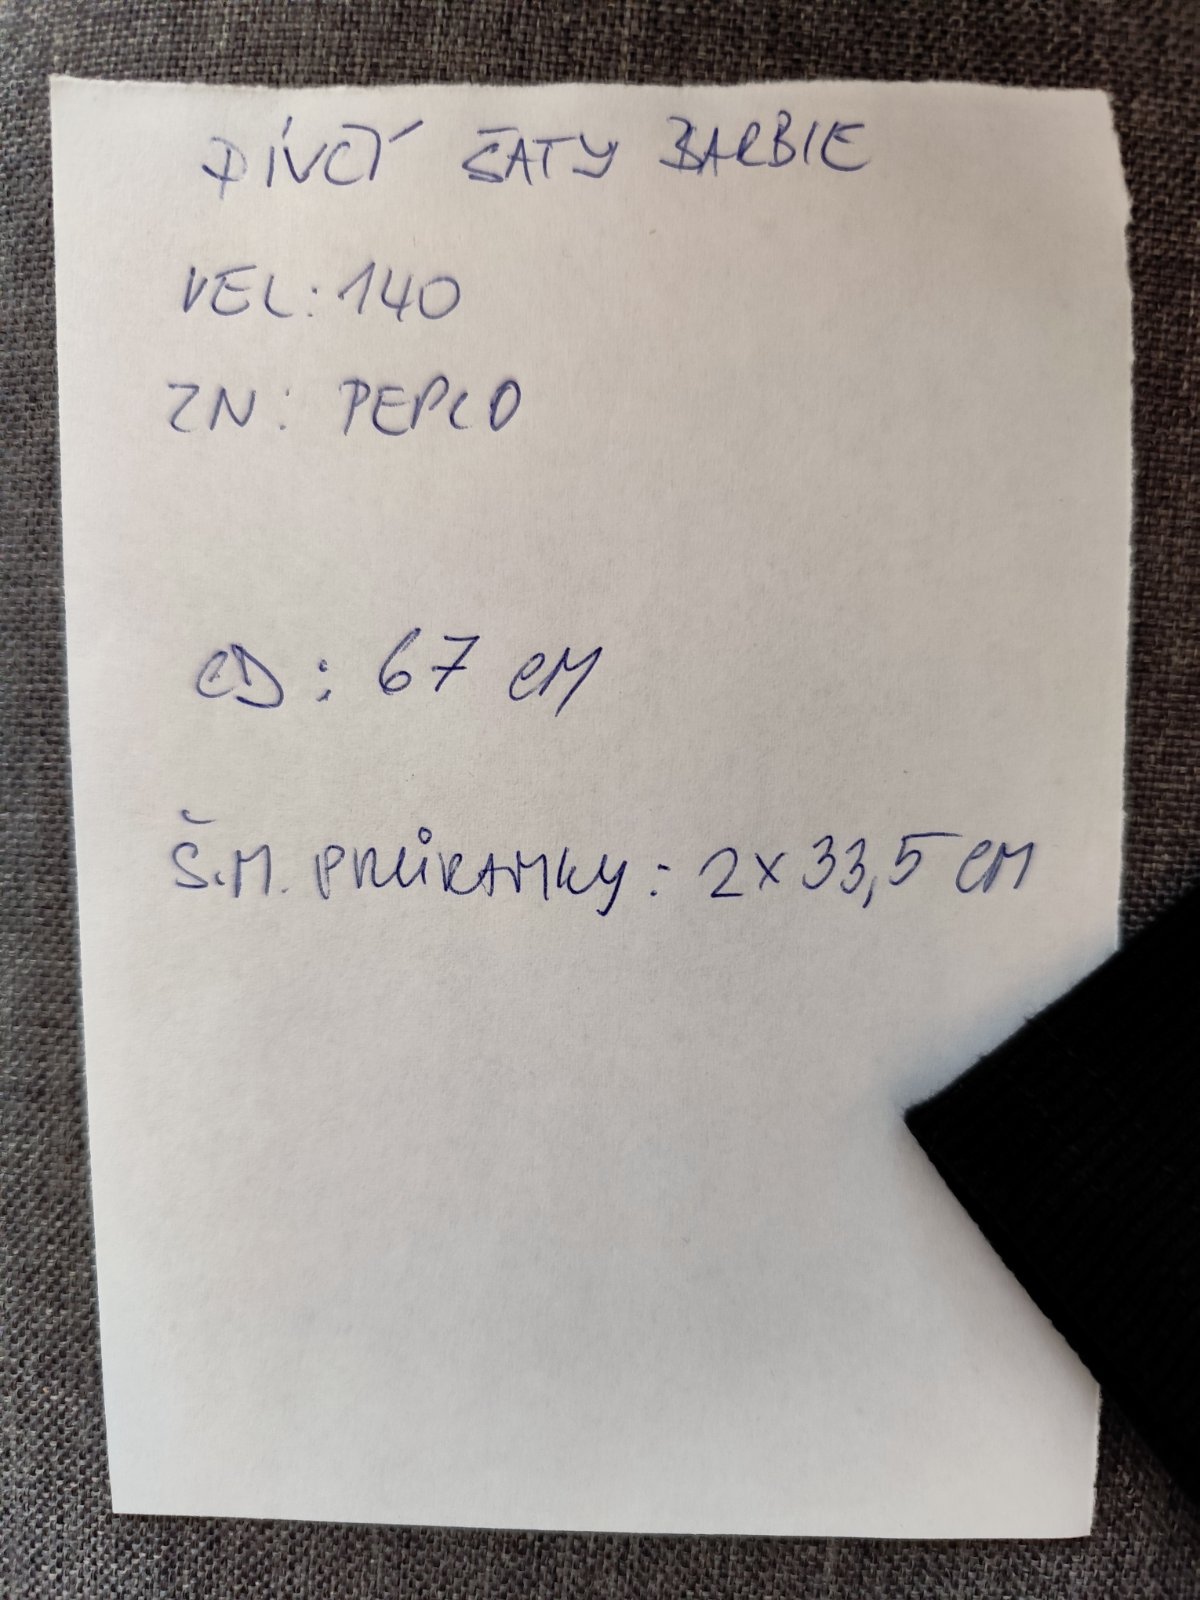 DÍVČÍ ŠATY BARBIE
VEL: 140
ZN: PEPCO
CD: 67 CM
Š.M. PRŮRAMKY: 2x33,5 CM